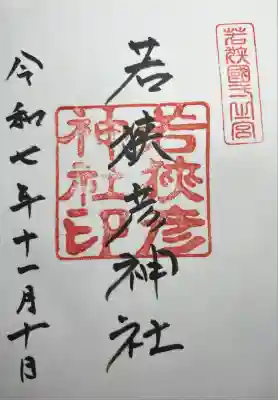 若狭國一之宮
若狭彦神社
若狭彦
神社印
令和七年十一月十日